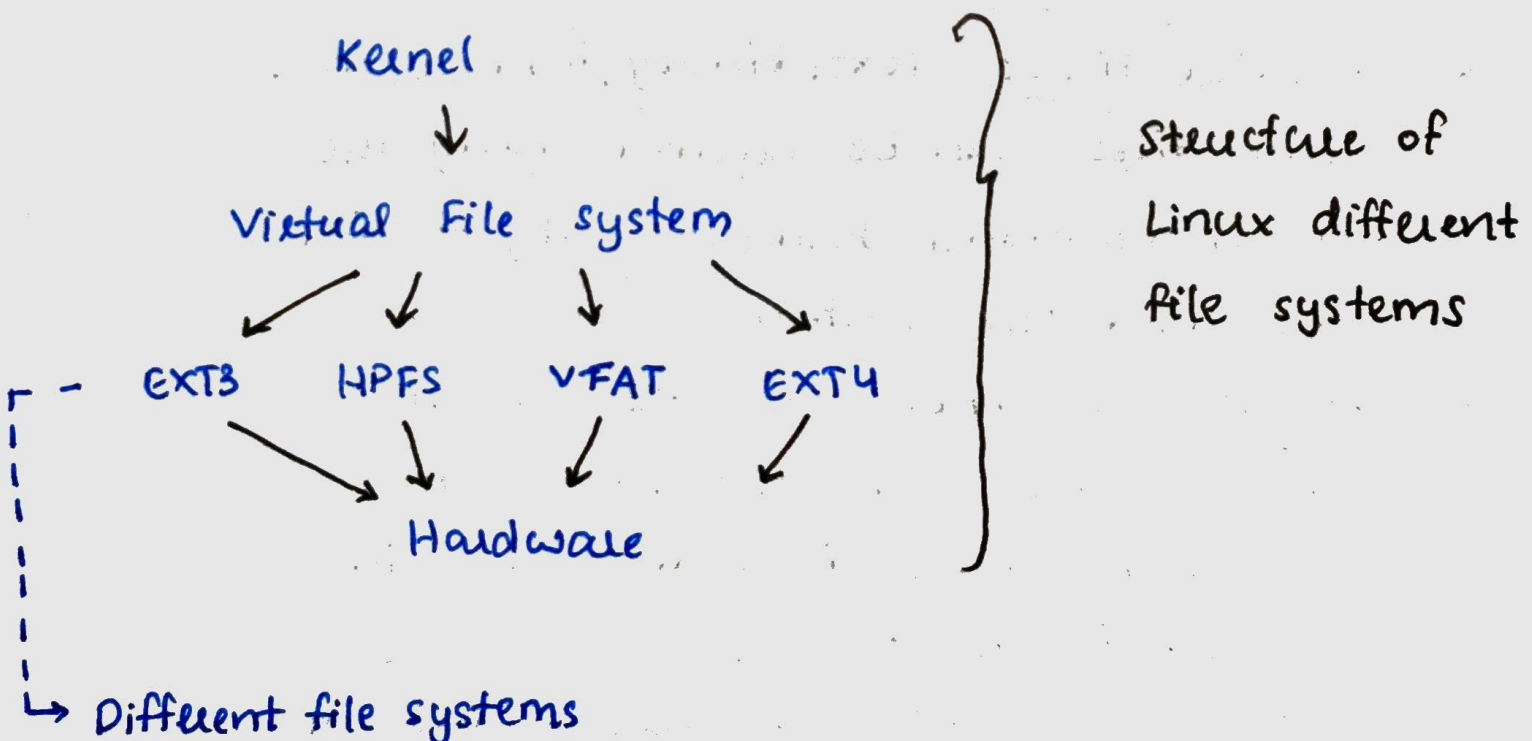 Kernel
Virtual File system
EXT3 HPFS VFAT EXT4
Hardware
Structure of
Linux different
file systems
Different file systems